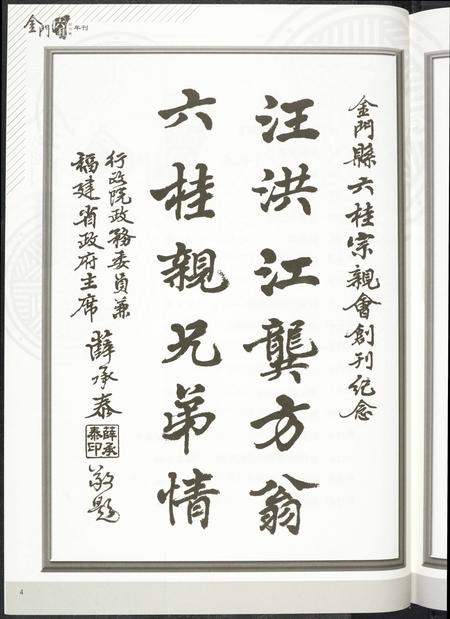 金門 年刊
金門縣六桂宗親會創刊紀念
汪洪江龔方翁
六桂親兄弟情
行政院政務委員兼
福建省政府主席
薛承泰
薛承
泰印
敬題
4